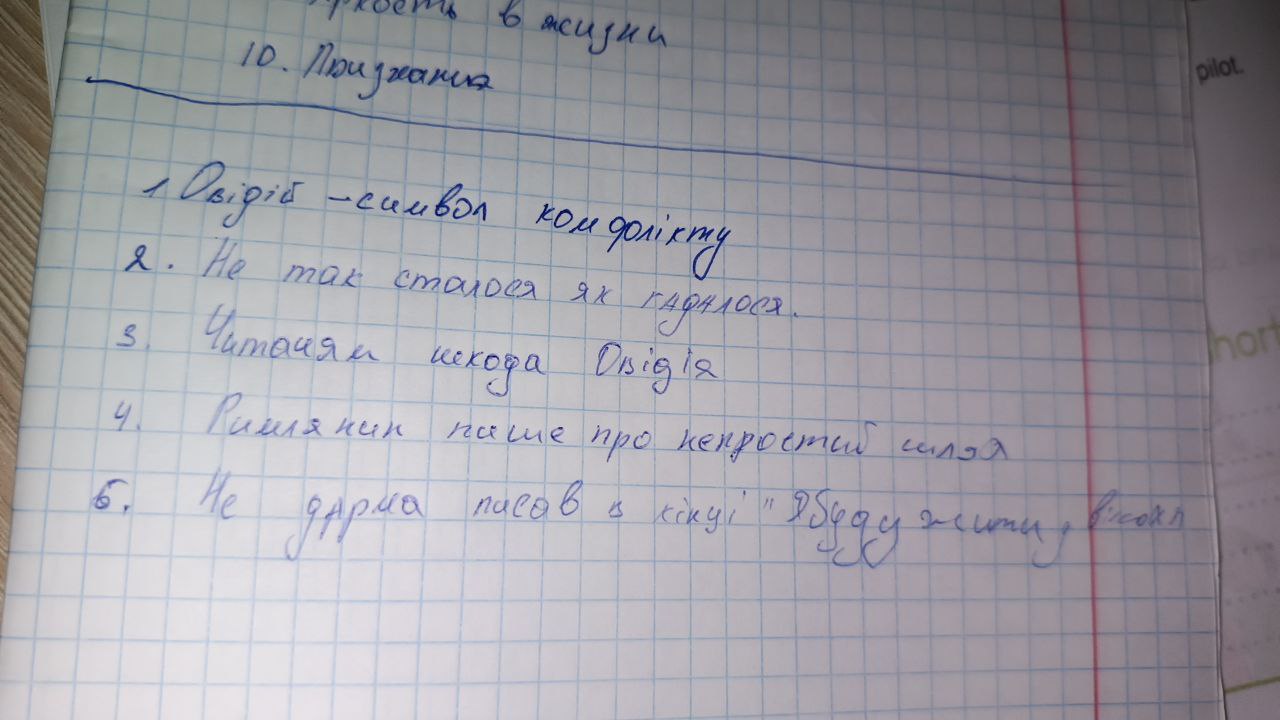 яркость в жизни
10. Признания
pilot.
1. Овідій – символ комфолікту
2. Не так сталося як гадалося.
3. Читачям шкода Овідія
4. Римлянин пише про непростий шлях
5. Не дарма писав в кінці "Я буду жити, віками